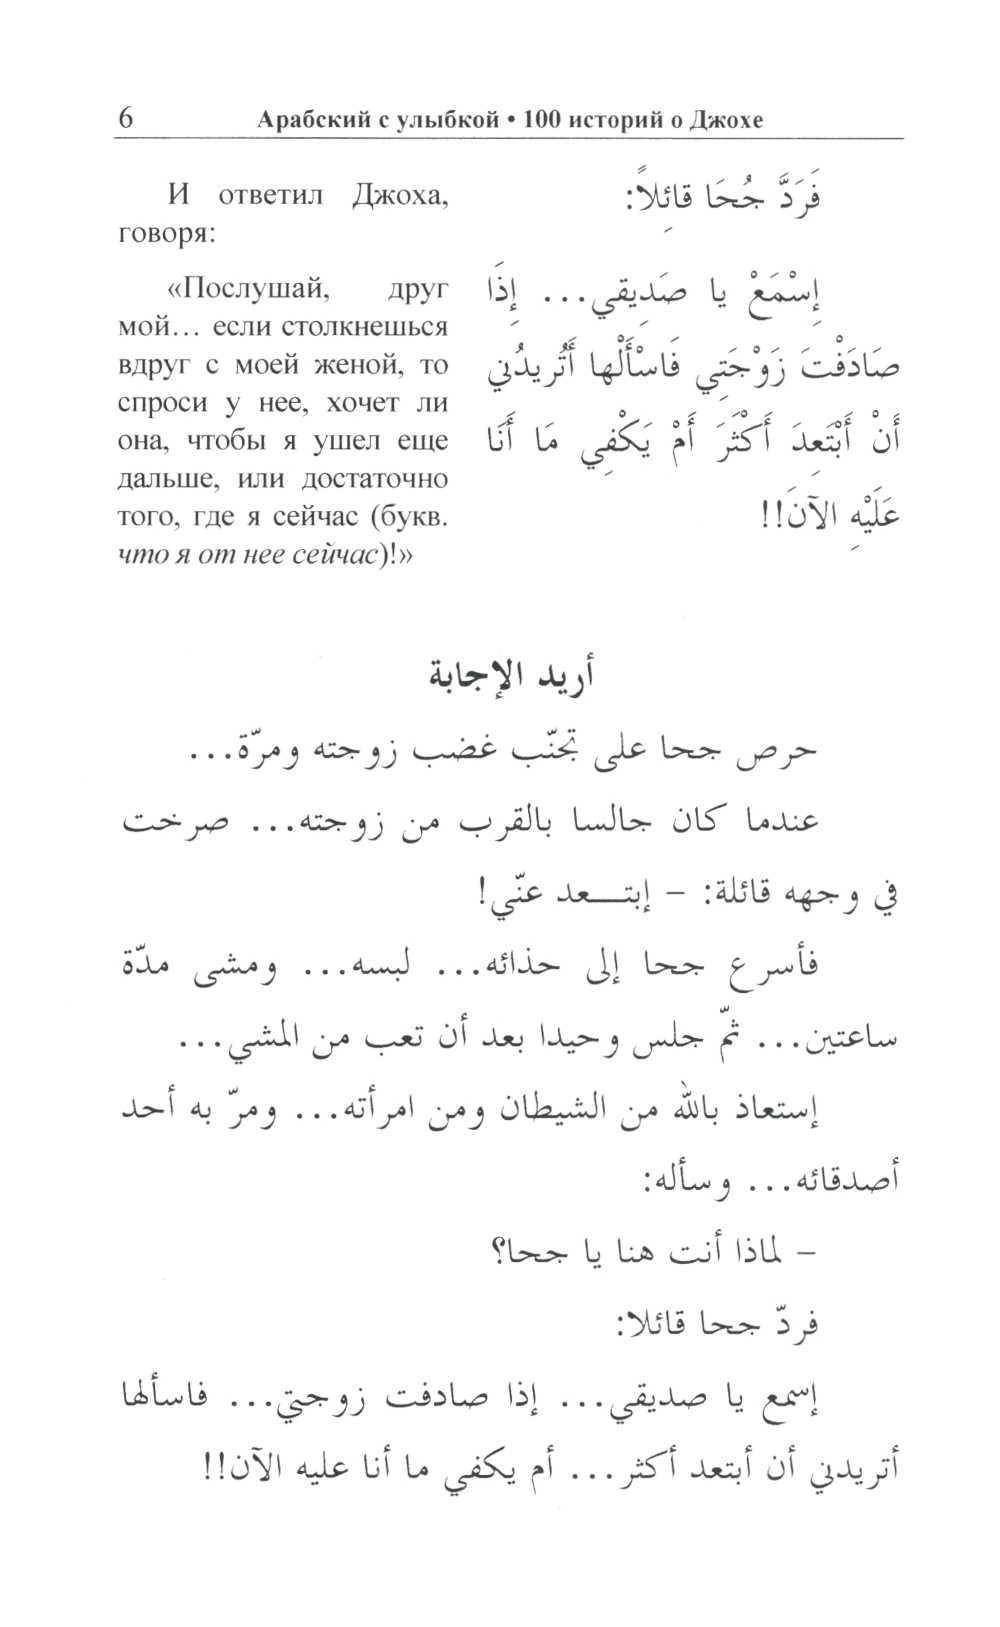 6 Арабский с улыбкой • 100 историй о Джохе
И ответил Джоха,
говоря:
«Послушай, друг
мой... если столкнешься
вдруг с моей женой, то
спроси у нее, хочет ли
она, чтобы я ушел еще
дальше, или достаточно
того, где я сейчас (букв.
что я от нее сейчас)!»
فَرَدَّ جُحَا قائِلاً:
إِسْمَعْ يا صَدِيقي... إِذَا
صَادَفْتَ زَوْجَتِي فَاسْأَلْها أَتُريدُني
أَنْ أَبْتَعِدَ أَكْثَرَ أَمْ يَكْفِي مَا أَنَا
عَلَيْهِ الآنَ!!
أريد الإجابة
حرص جحا على تجنّب غضب زوجته ومرّة...
عندما كان جالسا بالقرب من زوجته... صرخت
في وجهه قائلة: – إبتـــعد عنّي!
فأسرع جحا إلى حذائه... لبسه... ومشى مدّة
ساعتين... ثمّ جلس وحيدا بعد أن تعب من المشي...
إستعاذ بالله من الشيطان ومن امرأته... ومرّ به أحد
أصدقائه... وسأله:
– لماذا أنت هنا يا جحا؟
فردّ جحا قائلا:
إسمع يا صديقي... إذا صادفت زوجتي... فاسألها
أتريدني أن أبتعد أكثر... أم يكفي ما أنا عليه الآن!!